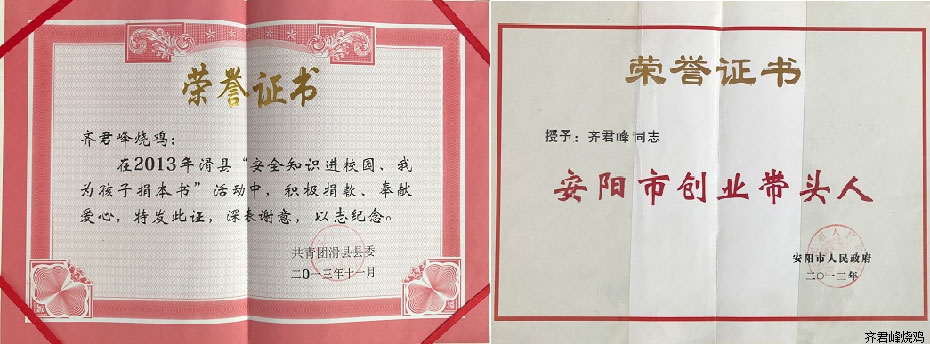 荣誉证书
齐君峰烧鸡：
在2013年滑县“安全知识进校园、我
为孩子捐本书”活动中，积极捐款、奉献
爱心，特发此证，深表谢意，以志纪念。
共青团滑县县委
二〇一三年十一月
荣誉证书
授予：齐君峰同志
安阳市创业带头人
安阳市人民政府
二〇一二年
齐君峰烧鸡